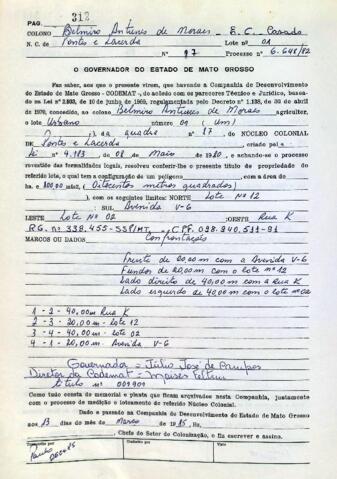 PAG. 312
COLONO Belmiro Antunes de Moraes - E.C. Casado
N. C. de Pontes e Lacerda Lote nº 01
Nº 17 Processo nº 6.648/82
O GOVERNADOR DO ESTADO DE MATO GROSSO
Faz saber, aos que o presente virem, que havendo a Companhia de Desenvolvimento
do Estado de Mato Grosso - CODEMAT -, de acordo com os pareceres Técnico e Jurídico, basea-
dos na Lei nº 2.903, de 10 de junho de 1969, regulamentada pelo Decreto nº 1.138, de 30 de abril
de 1970, concedido, ao colono Belmiro Antunes de Moraes agricultor,
o lote Urbano número 01 (Um)
da quadra nº 17, do NÚCLEO COLONIAL
DE Pontes e Lacerda criado pela
Lei nº 4.183, de 08, de Maio 1980, e achando-se o processo
revestido das formalidades legais, resolveu conferir-lhe o presente título de propriedade do
referido lote, o qual tem a configuração de um polígono com a área de
ha e 800,00 mts2, (Oitocentos metros quadrados)
), com os seguintes limites: NORTE Lote Nº 12
: SUL Avenida V-6
LESTE Lote Nº 02 : OESTE Rua K
R.G. nº 338.455-SSP/MT, CPF. 098.240.531-91
MARCOS OU DADOS Confrontação
Frente de 20,00 m com a Avenida V-6
Fundos de 20,00 m com o lote nº 12
Lado direito de 40,00 m com a Rua K
Lado esquerdo de 40,00 m com o lote nº 02
1 - 2 - 40,00 m Rua K
2 - 3 - 20,00 m - Lote 12
3 - 4 - 40,00 m - Lote 02
4 - 1 - 20,00 m Avenida V-6
Governador = Júlio José de Campos
Diretor da Codemat = Moises Feltrin
título nº 001909
Como tudo consta do memorial e planta que ficam arquivados nesta Companhia,
juntamente com o processo de medição e loteamento do referido Núcleo Colonial.
Dado e passado na Companhia de Desenvolvimento do Estado de Mato Grosso
aos 13 dias do mês de Março de 1985. Eu,
Chefe do Setor de Colonização, o fiz escrever e assino.
Conferido por Visto